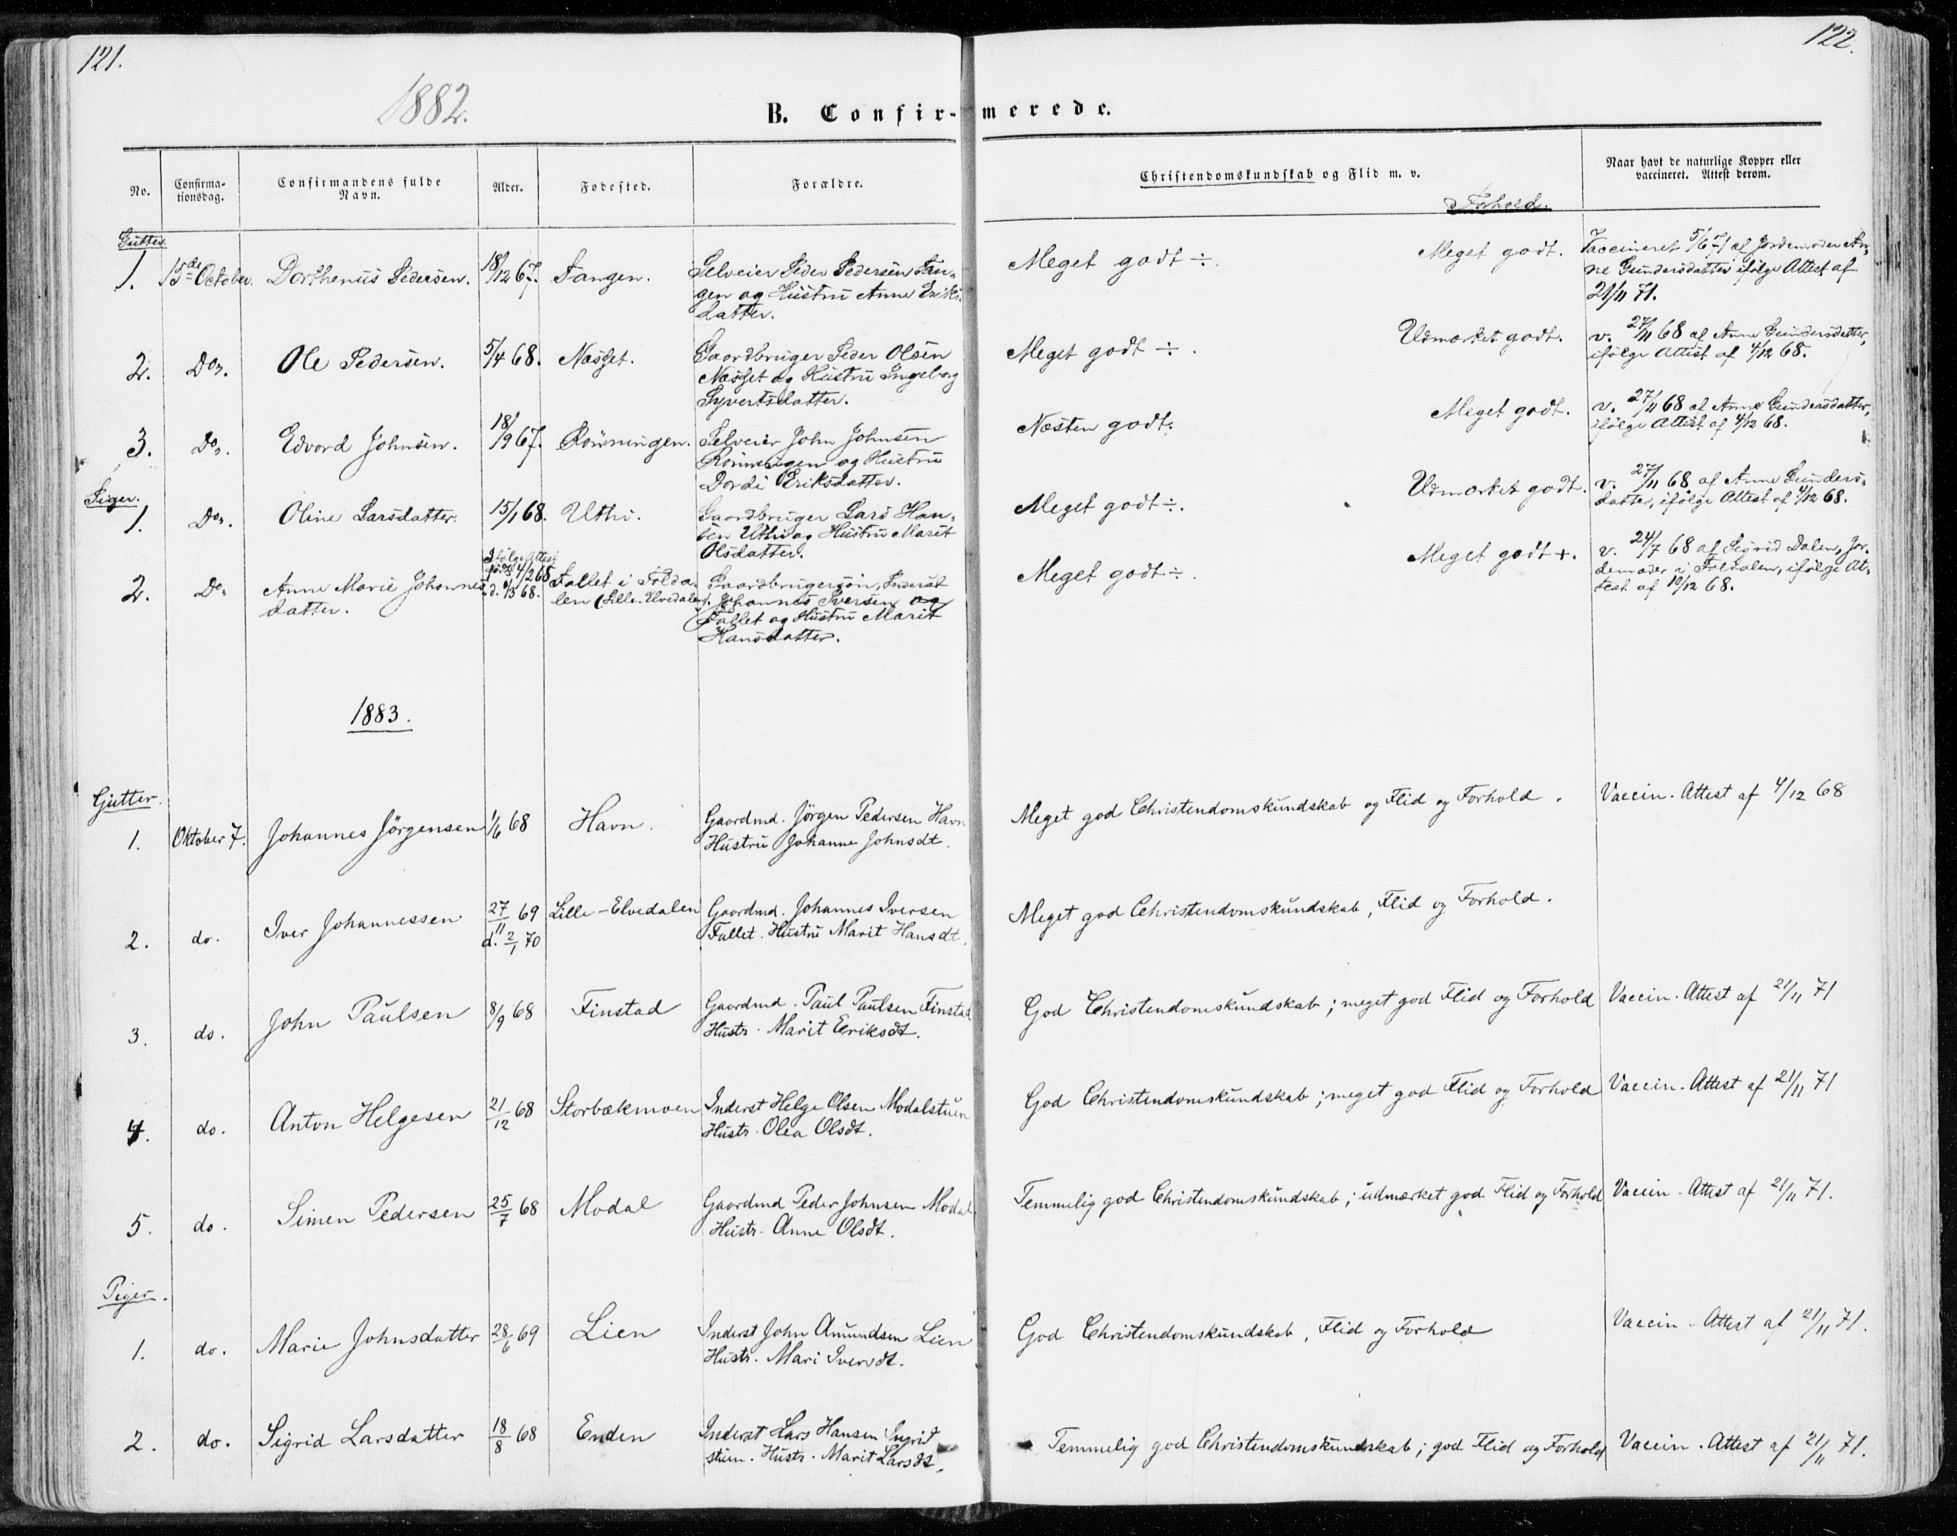 121.
122.
1882.
B. Confirmerede.
No.
Confirmationsdag.
Confirmandens fulde Navn.
Alder.
Fødested.
Forældre.
Christendomskundskab og Flid m. v.
Forhold.
Naar havt de naturlige Kopper eller vaccineret. Attest derom.
Gutter.
1. 15de October. Dorthenus Pedersen. 18/12 67. Tangen. Selveier Peder Pedersen Tan-
gen og Hustru Anne Eriks-
datter.
Meget godt ÷. Meget godt. Vaccineret 5/6 71 af Jordemoder An-
ne Gundersdatter ifølge Attest af
21/11 71.
2. Do. Ole Pedersen. 5/4 68. Næsset. Gaardbruger Peder Olsen
Næsset og Hustru Ingeborg
Syvertsdatter.
Meget godt ÷. Udmærket godt. v. 27/11 68 af Anne Gundersdatter,
ifølge Attest af 4/12 68.
3. Do. Edvord Johnsen. 18/9 67. Rønningen. Selveier John Johnsen
Rønningen og Hustru
Dordi Eriksdatter.
Næsten godt. Meget godt. v. 27/11 68 af Anne Gundersdatter,
ifølge Attest af 4/12 68.
Piger.
1. Do. Oline Larsdatter. 15/1 68. Uthi. Gaardbruger Lars Han-
sen Uthi og Hustru Marit
Olsdatter.
Meget godt ÷. Udmærket godt. v. 27/11 68 af Anne Gunders-
datter, ifølge Attest af 4/12 68.
2. Do. Anne Marie Johannes-
datter.
Ifølge Attest
født 4/2 68
d. 1/3 68.
Fallet i Folda-
len (Lille-Elvedalen).
Gaardbrugersøn, Inderst
Johannes Iversen og
Fallet og Hustru Marit
Hansdatter.
Meget godt ÷. Meget godt +. v. 24/7 68 af Sigrid Dalen, Jor-
demoder i Foldalen, ifølge At-
test af 10/12 68.
1883.
Gutter.
1. Oktober 7. Johannes Jörgensen 1/6 68 Havn. Gaardmd. Jörgen Pedersen Havn
Hustru Johanne Johnsdt.
Meget god Christendomskundskab og Flid og Forhold. Vaccin. Attest af 4/12 68
2. do. Iver Johannessen 27/11 69
d. 2/1 70
Lille-Elvedalen Gaardmd. Johannes Iversen
Fallet. Hustru Marit Hansdt.
Meget god Christendomskundskab, Flid og Forhold.
3. do. John Paulsen 8/9 68 Finstad Gaardmd. Paul Paulsen Finstad
Hustr. Marit Eriksdt.
God Christendomskundskab; meget god Flid og Forhold Vaccin. Attest af 21/11 71
4. do. Anton Helgesen 21/12 68 Storbækmoen Inderst Helge Olsen Modalstuen
Hustr. Olea Olsdt.
God Christendomskundskab; meget god Flid og Forhold Vaccin. Attest af 21/11 71
5. do. Simen Pedersen 25/7 68 Modal Gaardmd Peder Johnsen Modal
Hustr. Anne Olsdt.
Temmelig god Christendomskundskab; udmærket god Flid og Forhold Vaccin. Attest af 21/11 71.
Piger.
1. do. Marie Johnsdatter 28/6 69 Lien Inderst John Amundsen Lien
Hustr. Mari Iversdt.
God Christendomskundskab, Flid og Forhold Vaccin. Attest af 21/11 71.
2. do. Sigrid Larsdatter 18/8 68 Enden Inderst Lars Hansen Ingrit
stuen. Hustr. Marit Larsdt.
Temmelig god Christendomskundskab; god Flid og Forhold Vaccin. Attest af 21/11 71.